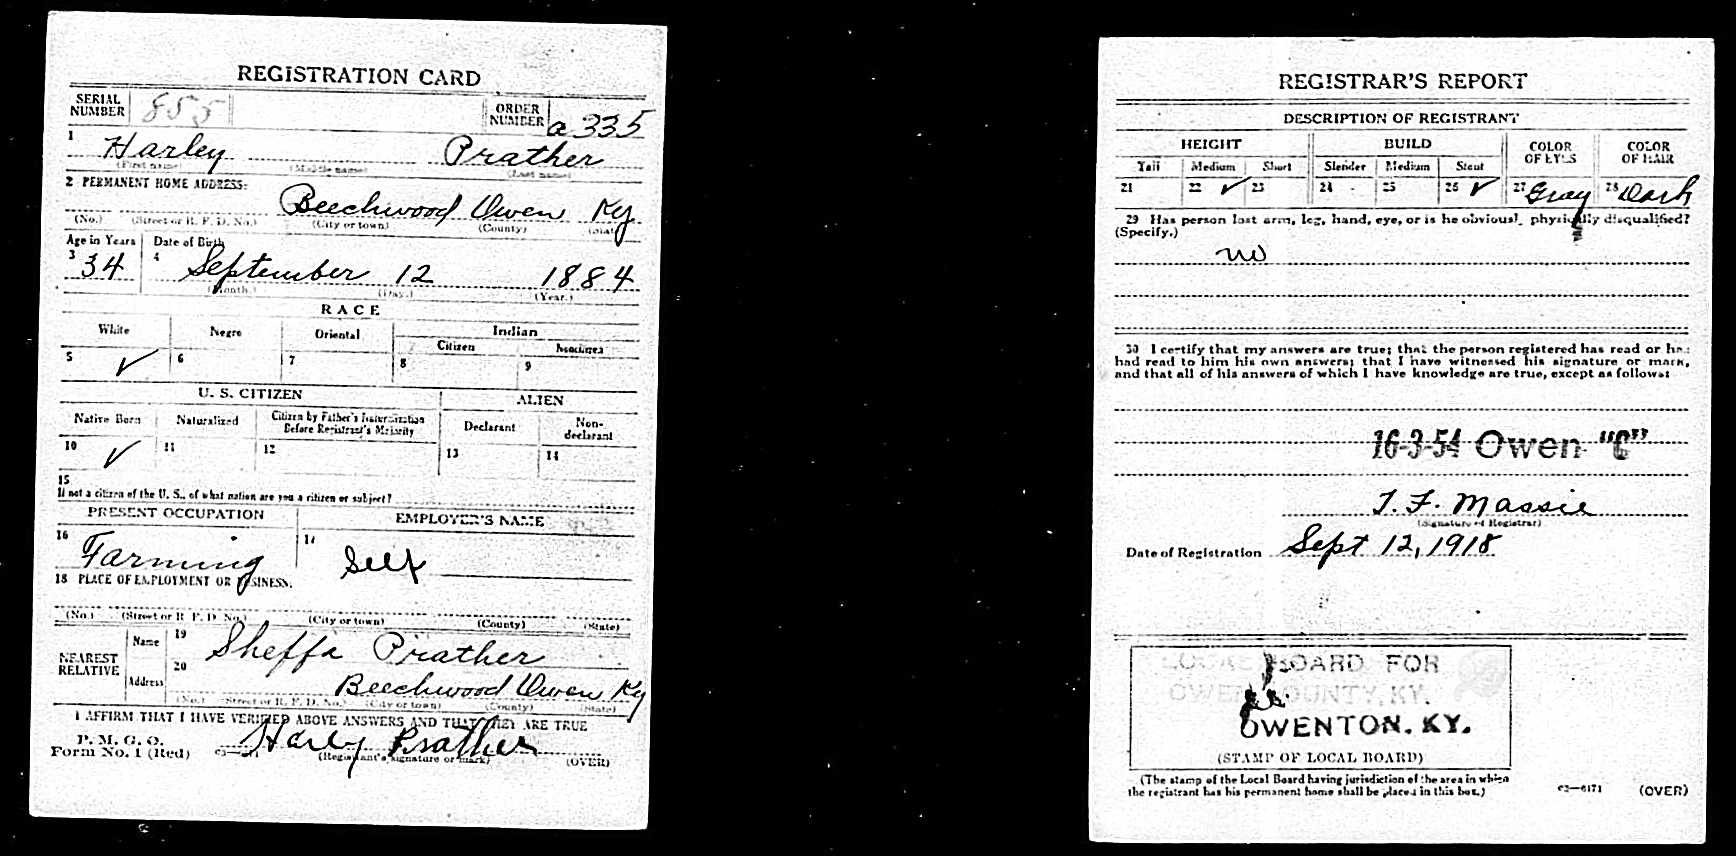 REGISTRATION CARD
SERIAL NUMBER 855 ORDER NUMBER a 335
1 Harley Prather
(First name) (Middle name) (Last name)
2 PERMANENT HOME ADDRESS:
Beechwood Owen Ky.
(No.) (Street or R. F. D. No.) (City or town) (County) (State)
Age in Years Date of Birth
3 34 4 September 12 1884
(Month.) (Day.) (Year.)
RACE
White Negro Oriental Indian
Citizen Noncitizen
5 ✓ 6 7 8 9
U. S. CITIZEN ALIEN
Native Born Naturalized Citizen by Father's Naturalization Before Registrant's Majority Declarant Non-declarant
10 ✓ 11 12 13 14
15
If not a citizen of the U. S., of what nation are you a citizen or subject?
PRESENT OCCUPATION EMPLOYER'S NAME
16 Farming 17 Self
18 PLACE OF EMPLOYMENT OR BUSINESS:
(No.) (Street or R. F. D. No.) (City or town) (County) (State)
NEAREST RELATIVE Name 19 Sheffa Prather
Address 20 Beechwood Owen Ky
(No.) (Street or R. F. D. No.) (City or town) (County) (State)
I AFFIRM THAT I HAVE VERIFIED ABOVE ANSWERS AND THAT THEY ARE TRUE
P. M. G. O.
Form No. 1 (Red) Harley Prather
(Registrant's signature or mark) (OVER)
REGISTRAR'S REPORT
DESCRIPTION OF REGISTRANT
HEIGHT BUILD COLOR OF EYES COLOR OF HAIR
Tall Medium Short Slender Medium Stout
21 22 ✓ 23 24 25 26 ✓ 27 Gray 28 Dark
29 Has person lost arm, leg, hand, eye, or is he obviously physically disqualified?
(Specify.)
no
30 I certify that my answers are true; that the person registered has read or has
had read to him his own answers; that I have witnessed his signature or mark,
and that all of his answers of which I have knowledge are true, except as follows:
16-3-54 Owen "C"
T. F. Massie
(Signature of Registrar)
Date of Registration Sept 12, 1918
LOCAL BOARD FOR
OWEN COUNTY, KY.
OWENTON. KY.
(STAMP OF LOCAL BOARD)
(The stamp of the Local Board having jurisdiction of the area in which
the registrant has his permanent home shall be placed in this box.)
03—6171 (OVER)